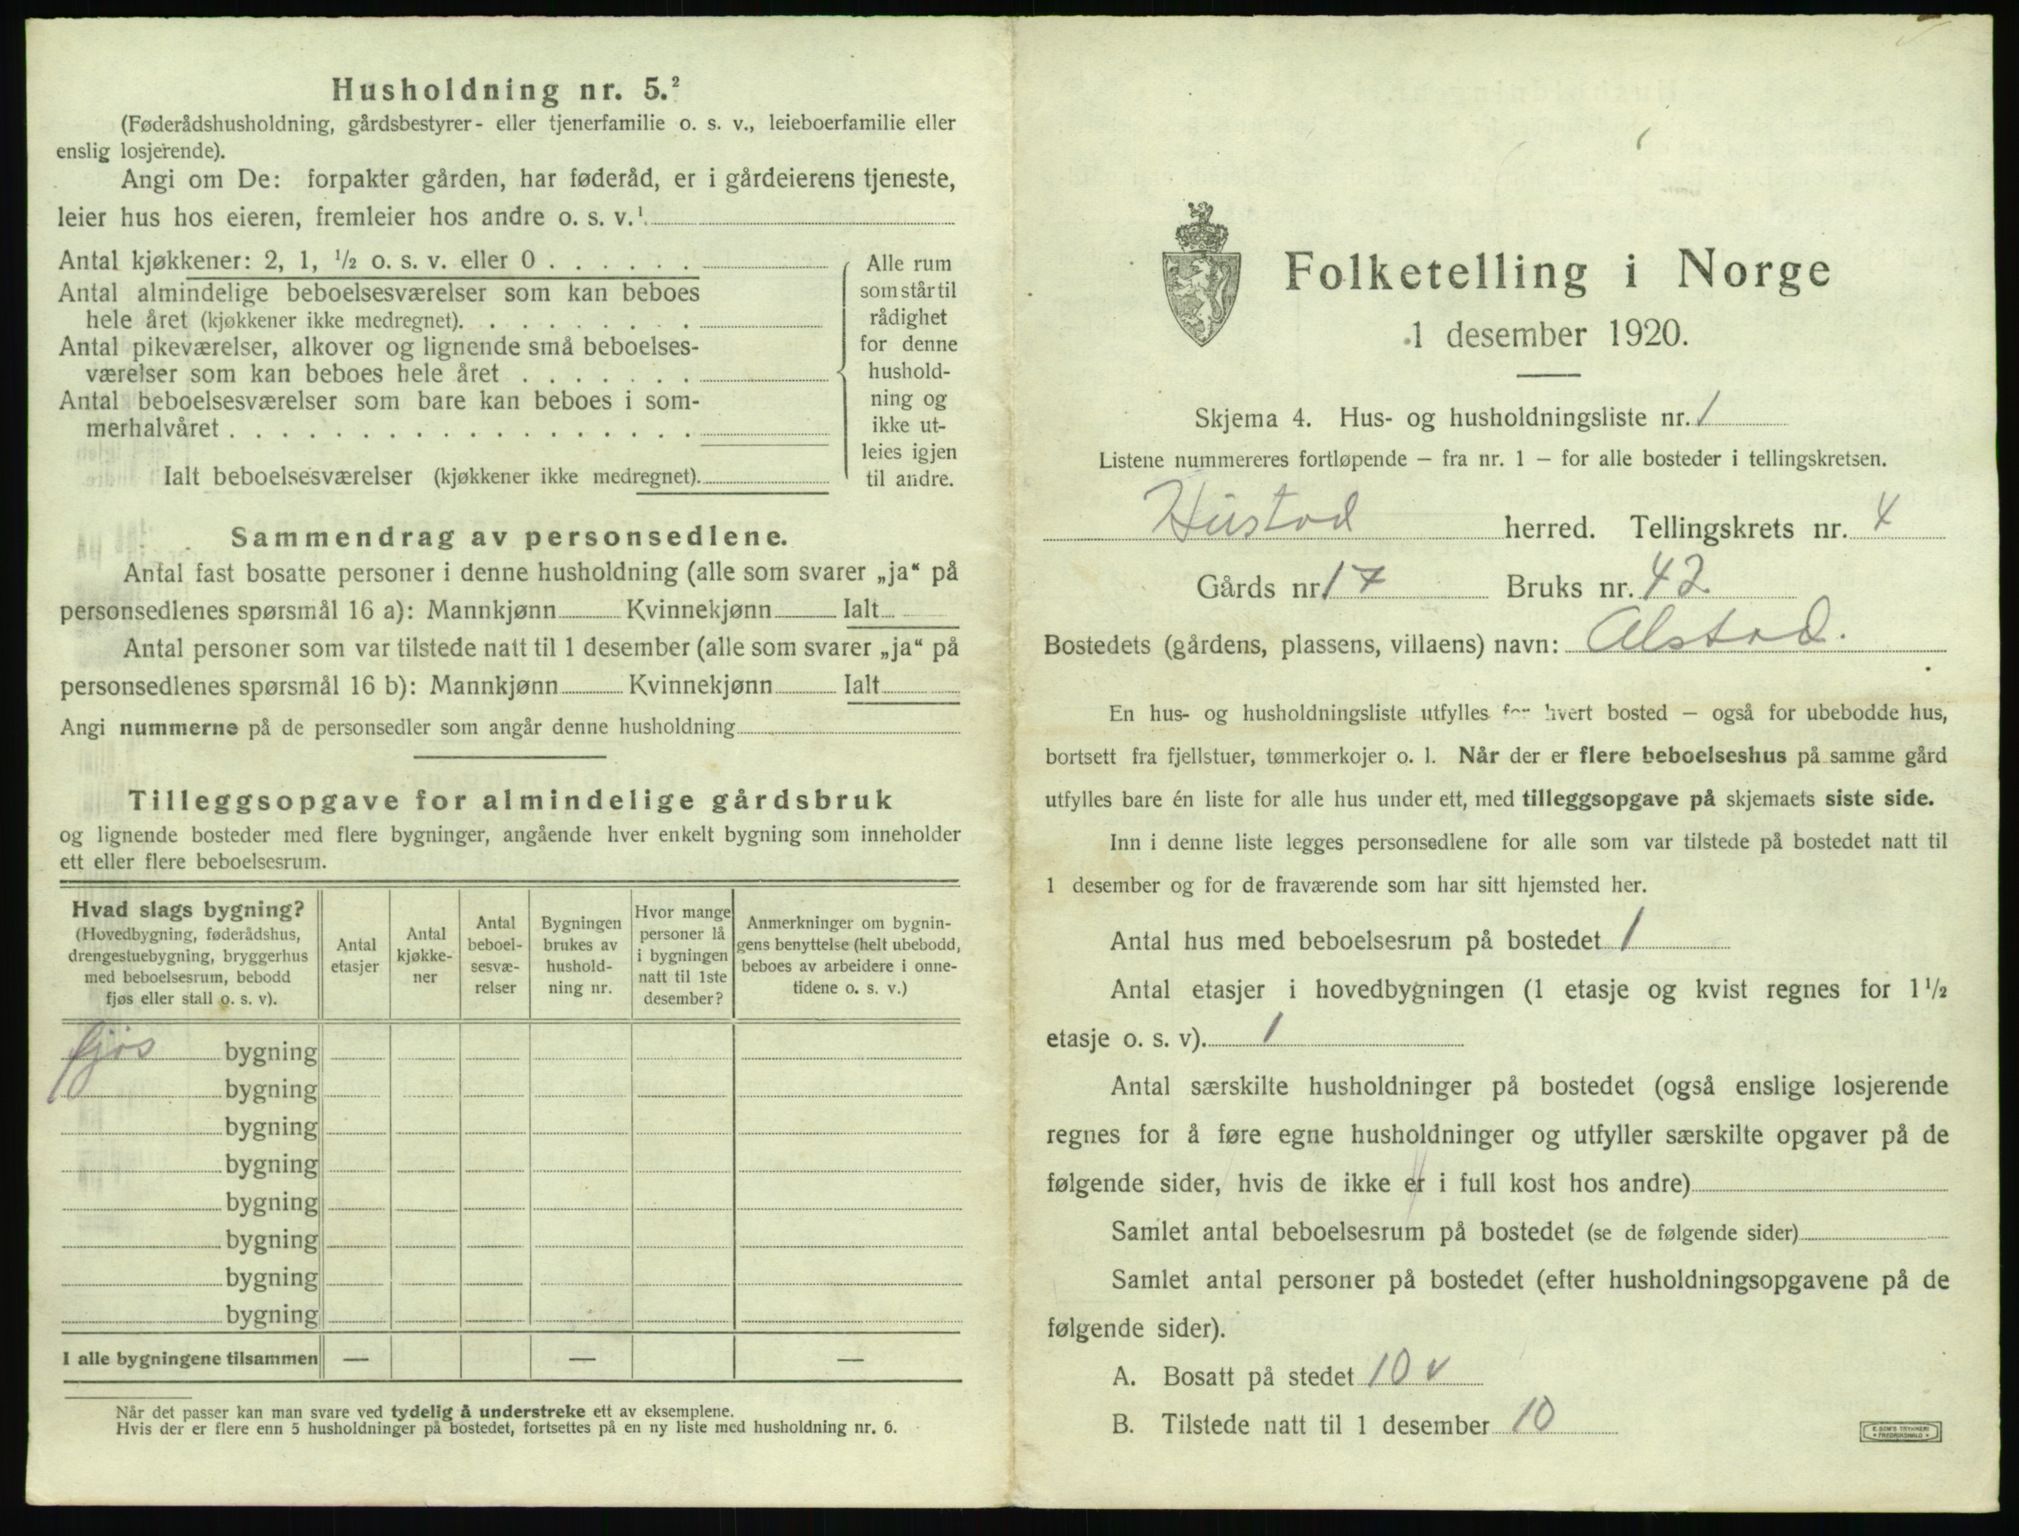 Husholdning nr. 5.²
(Føderådshusholdning, gårdsbestyrer- eller tjenerfamilie o. s. v., leieboerfamilie eller
enslig losjerende).
Angi om De: forpakter gården, har føderåd, er i gårdeierens tjeneste,
leier hus hos eieren, fremleier hos andre o. s. v.¹
Antal kjøkkener: 2, 1, ½ o. s. v. eller 0 . . . . . .
Antal almindelige beboelsesværelser som kan beboes
hele året (kjøkkener ikke medregnet). . . . . . . . .
Antal pikeværelser, alkover og lignende små beboelses-
værelser som kan beboes hele året . . . . . . .
Antal beboelsesværelser som bare kan beboes i som-
merhalvåret . . . . . . . . . . . . . . . . . .
Ialt beboelsesværelser (kjøkkener ikke medregnet).
Alle rum
som står til
rådighet
for denne
hushold-
ning og
ikke ut-
leies igjen
til andre.
Sammendrag av personsedlene.
Antal fast bosatte personer i denne husholdning (alle som svarer „ja“ på
personsedlenes spørsmål 16 a): Mannkjønn Kvinnekjønn Ialt
Antal personer som var tilstede natt til 1 desember (alle som svarer „ja“ på
personsedlenes spørsmål 16 b): Mannkjønn Kvinnekjønn Ialt
Angi nummerne på de personsedler som angår denne husholdning
Tilleggsopgave for almindelige gårdsbruk
og lignende bosteder med flere bygninger, angående hver enkelt bygning som inneholder
ett eller flere beboelsesrum.
Hvad slags bygning?
(Hovedbygning, føderådshus,
drengestuebygning, bryggerhus
med beboelsesrum, bebodd
fjøs eller stall o. s. v).
Antal
etasjer
Antal
kjøkke-
ner
Antal
beboel-
sesvæ-
relser
Bygningen
brukes av
hushold-
ning nr.
Hvor mange
personer lå
i bygningen
natt til 1ste
desember?
Anmerkninger om bygnin-
gens benyttelse (helt ubebodd,
beboes av arbeidere i onne-
tidene o. s. v.)
fjøs bygning
bygning
bygning
bygning
bygning
bygning
bygning
bygning
I alle bygningene tilsammen — — —
Når det passer kan man svare ved tydelig å understreke ett av eksemplene.
Hvis der er flere enn 5 husholdninger på bostedet, fortsettes på en ny liste med husholdning nr. 6.
Folketelling i Norge
1 desember 1920.
Skjema 4. Hus- og husholdningsliste nr. 1
Listene nummereres fortløpende – fra nr. 1 – for alle bosteder i tellingskretsen.
Hustad herred. Tellingskrets nr. 4
Gårds nr. 17 Bruks nr. 42
Bostedets (gårdens, plassens, villaens) navn: Alstad.
En hus- og husholdningsliste utfylles for hvert bosted – også for ubebodde hus,
bortsett fra fjellstuer, tømmerkojer o. l. Når der er flere beboelseshus på samme gård
utfylles bare én liste for alle hus under ett, med tilleggsopgave på skjemaets siste side.
Inn i denne liste legges personsedlene for alle som var tilstede på bostedet natt til
1 desember og for de fraværende som har sitt hjemsted her.
Antal hus med beboelsesrum på bostedet 1
Antal etasjer i hovedbygningen (1 etasje og kvist regnes for 1½
etasje o. s. v). 1
Antal særskilte husholdninger på bostedet (også enslige losjerende
regnes for å føre egne husholdninger og utfyller særskilte opgaver på de
følgende sider, hvis de ikke er i full kost hos andre)
Samlet antal beboelsesrum på bostedet (se de følgende sider)
Samlet antal personer på bostedet (efter husholdningsopgavene på de
følgende sider).
A. Bosatt på stedet 10 v
B. Tilstede natt til 1 desember 10
E. SEM'S TRYKKERI
FREDRIKSHALD